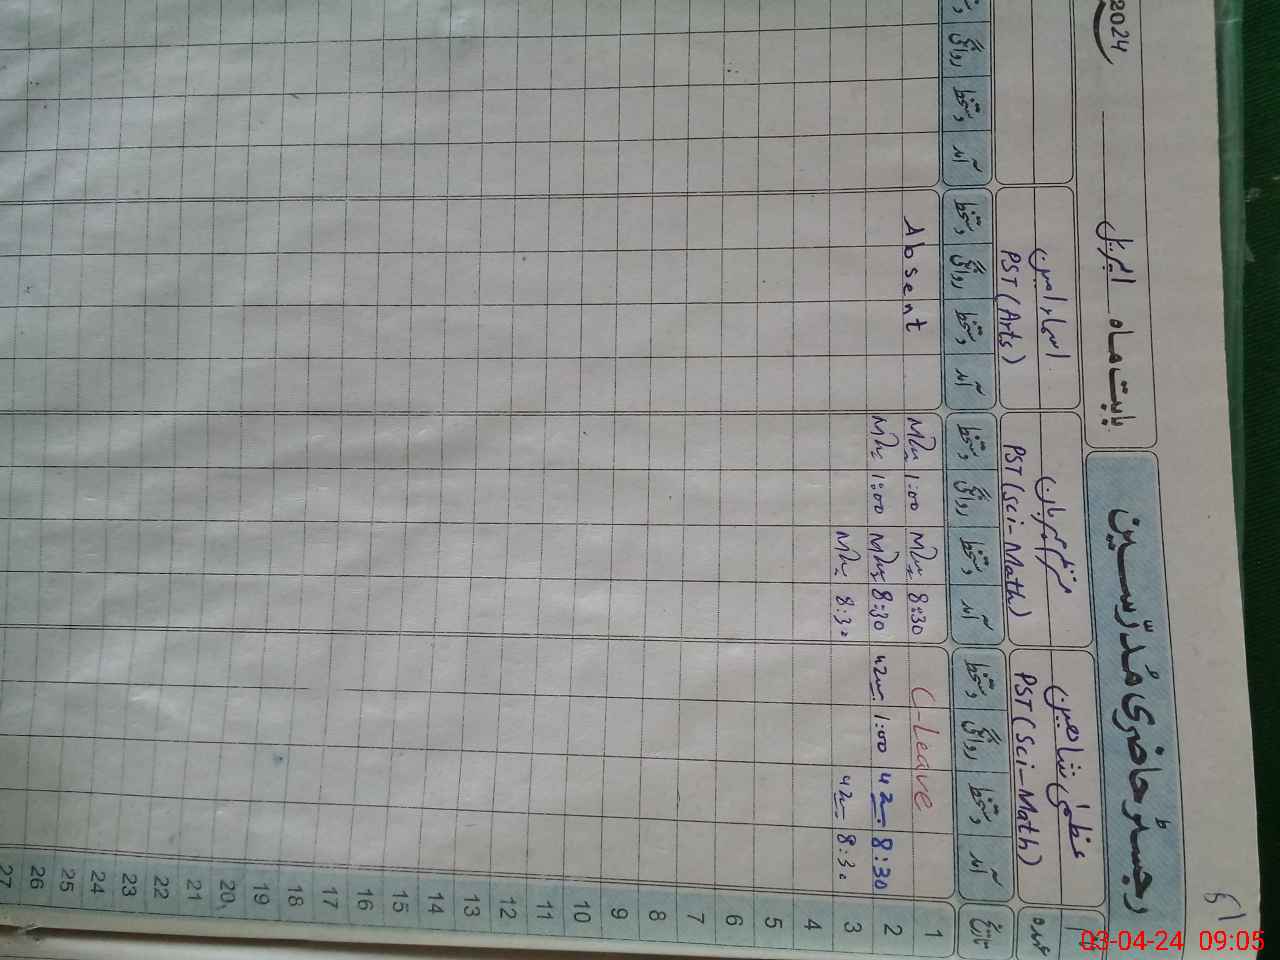 رجسٹر حاضری مُدرّسین
بابت ماہ اپریل 2024
عظمیٰ شاہین
PST (Sci-Math)
PST (Sci-Math)
اسماء امین
PST (Arts)
عہدہ
تاریخ آمد دستخط روانگی دستخط آمد دستخط روانگی دستخط آمد دستخط روانگی دستخط آمد دستخط روانگی
1 C-Leave 8:30 1:00 Absent
2 8:30 1:00 8:30 1:00
3 8:30 8:30
4
5
6
7
8
9
10
11
12
13
14
15
16
17
18
19
20
21
22
23
24
25
26
27
03-04-24 09:05